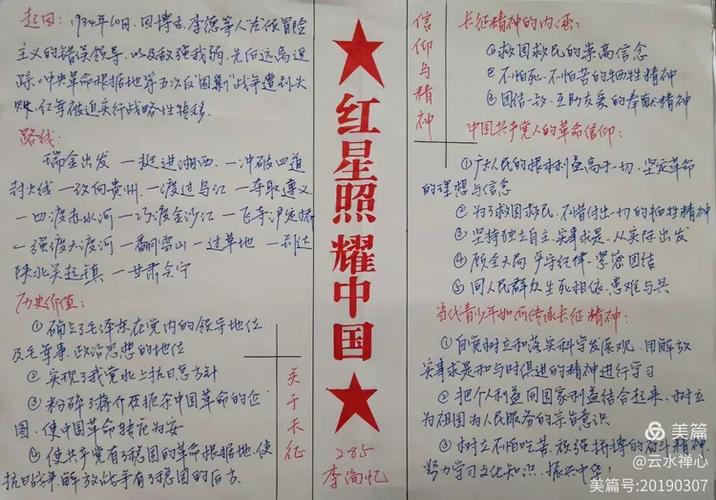 起因：1934年10月，因博古、李德等人左倾冒险
主义的错误领导，以及敌强我弱，先伯远离追
踪，中央革命根据地第五次反“围剿”战争遭到失
败，红军被迫实行战略性转移。
路线：
瑞金出发—挺进湘西—冲破四道
封火线—改向贵州—渡过乌江—夺取遵义
—四渡赤水河—巧渡金沙江—飞夺泸定桥
—强渡大渡河—翻雪山—过草地—到达
陕北吴起镇—甘肃会宁
历史价值：
①确立了毛泽东在党内的领导地位
及毛军事、政治思想的地位
②实现了我党北上抗日总方针
③粉碎了蒋介石扼杀中国革命的企
图，使中国革命转危为安
④使共产党有了稳固的革命根据地，使
抗日战争、解放战争有了稳固的后方
关于长征
红星照耀中国
285
李尚忆
信仰与精神
长征精神的内涵：
①救国救民的崇高信念
②不怕死、不怕苦的牺牲精神
③团结一致、互助友爱的奉献精神
中国共产党人的革命信仰：
①广大人民的根本利益高于一切，坚定革命
的理想与信念
②为了救国救民，不惜付出一切的牺牲精神
③坚持独立自主、实事求是、从实际出发
④顾全大局、严守纪律、紧密团结
⑤同人民群众生死相依、患难与共
当代青少年如何传承长征精神：
①自觉树立和落实科学发展观，用解放
实事求是和与时俱进的精神进行学习
②把个人利益同国家利益结合起来，树立
为祖国为人民服务的宗旨意识
③树立不怕吃苦、顽强拼搏的奋斗精神，
努力学习文化知识，振兴中华！
美篇
@云水禅心
美篇号:20190307